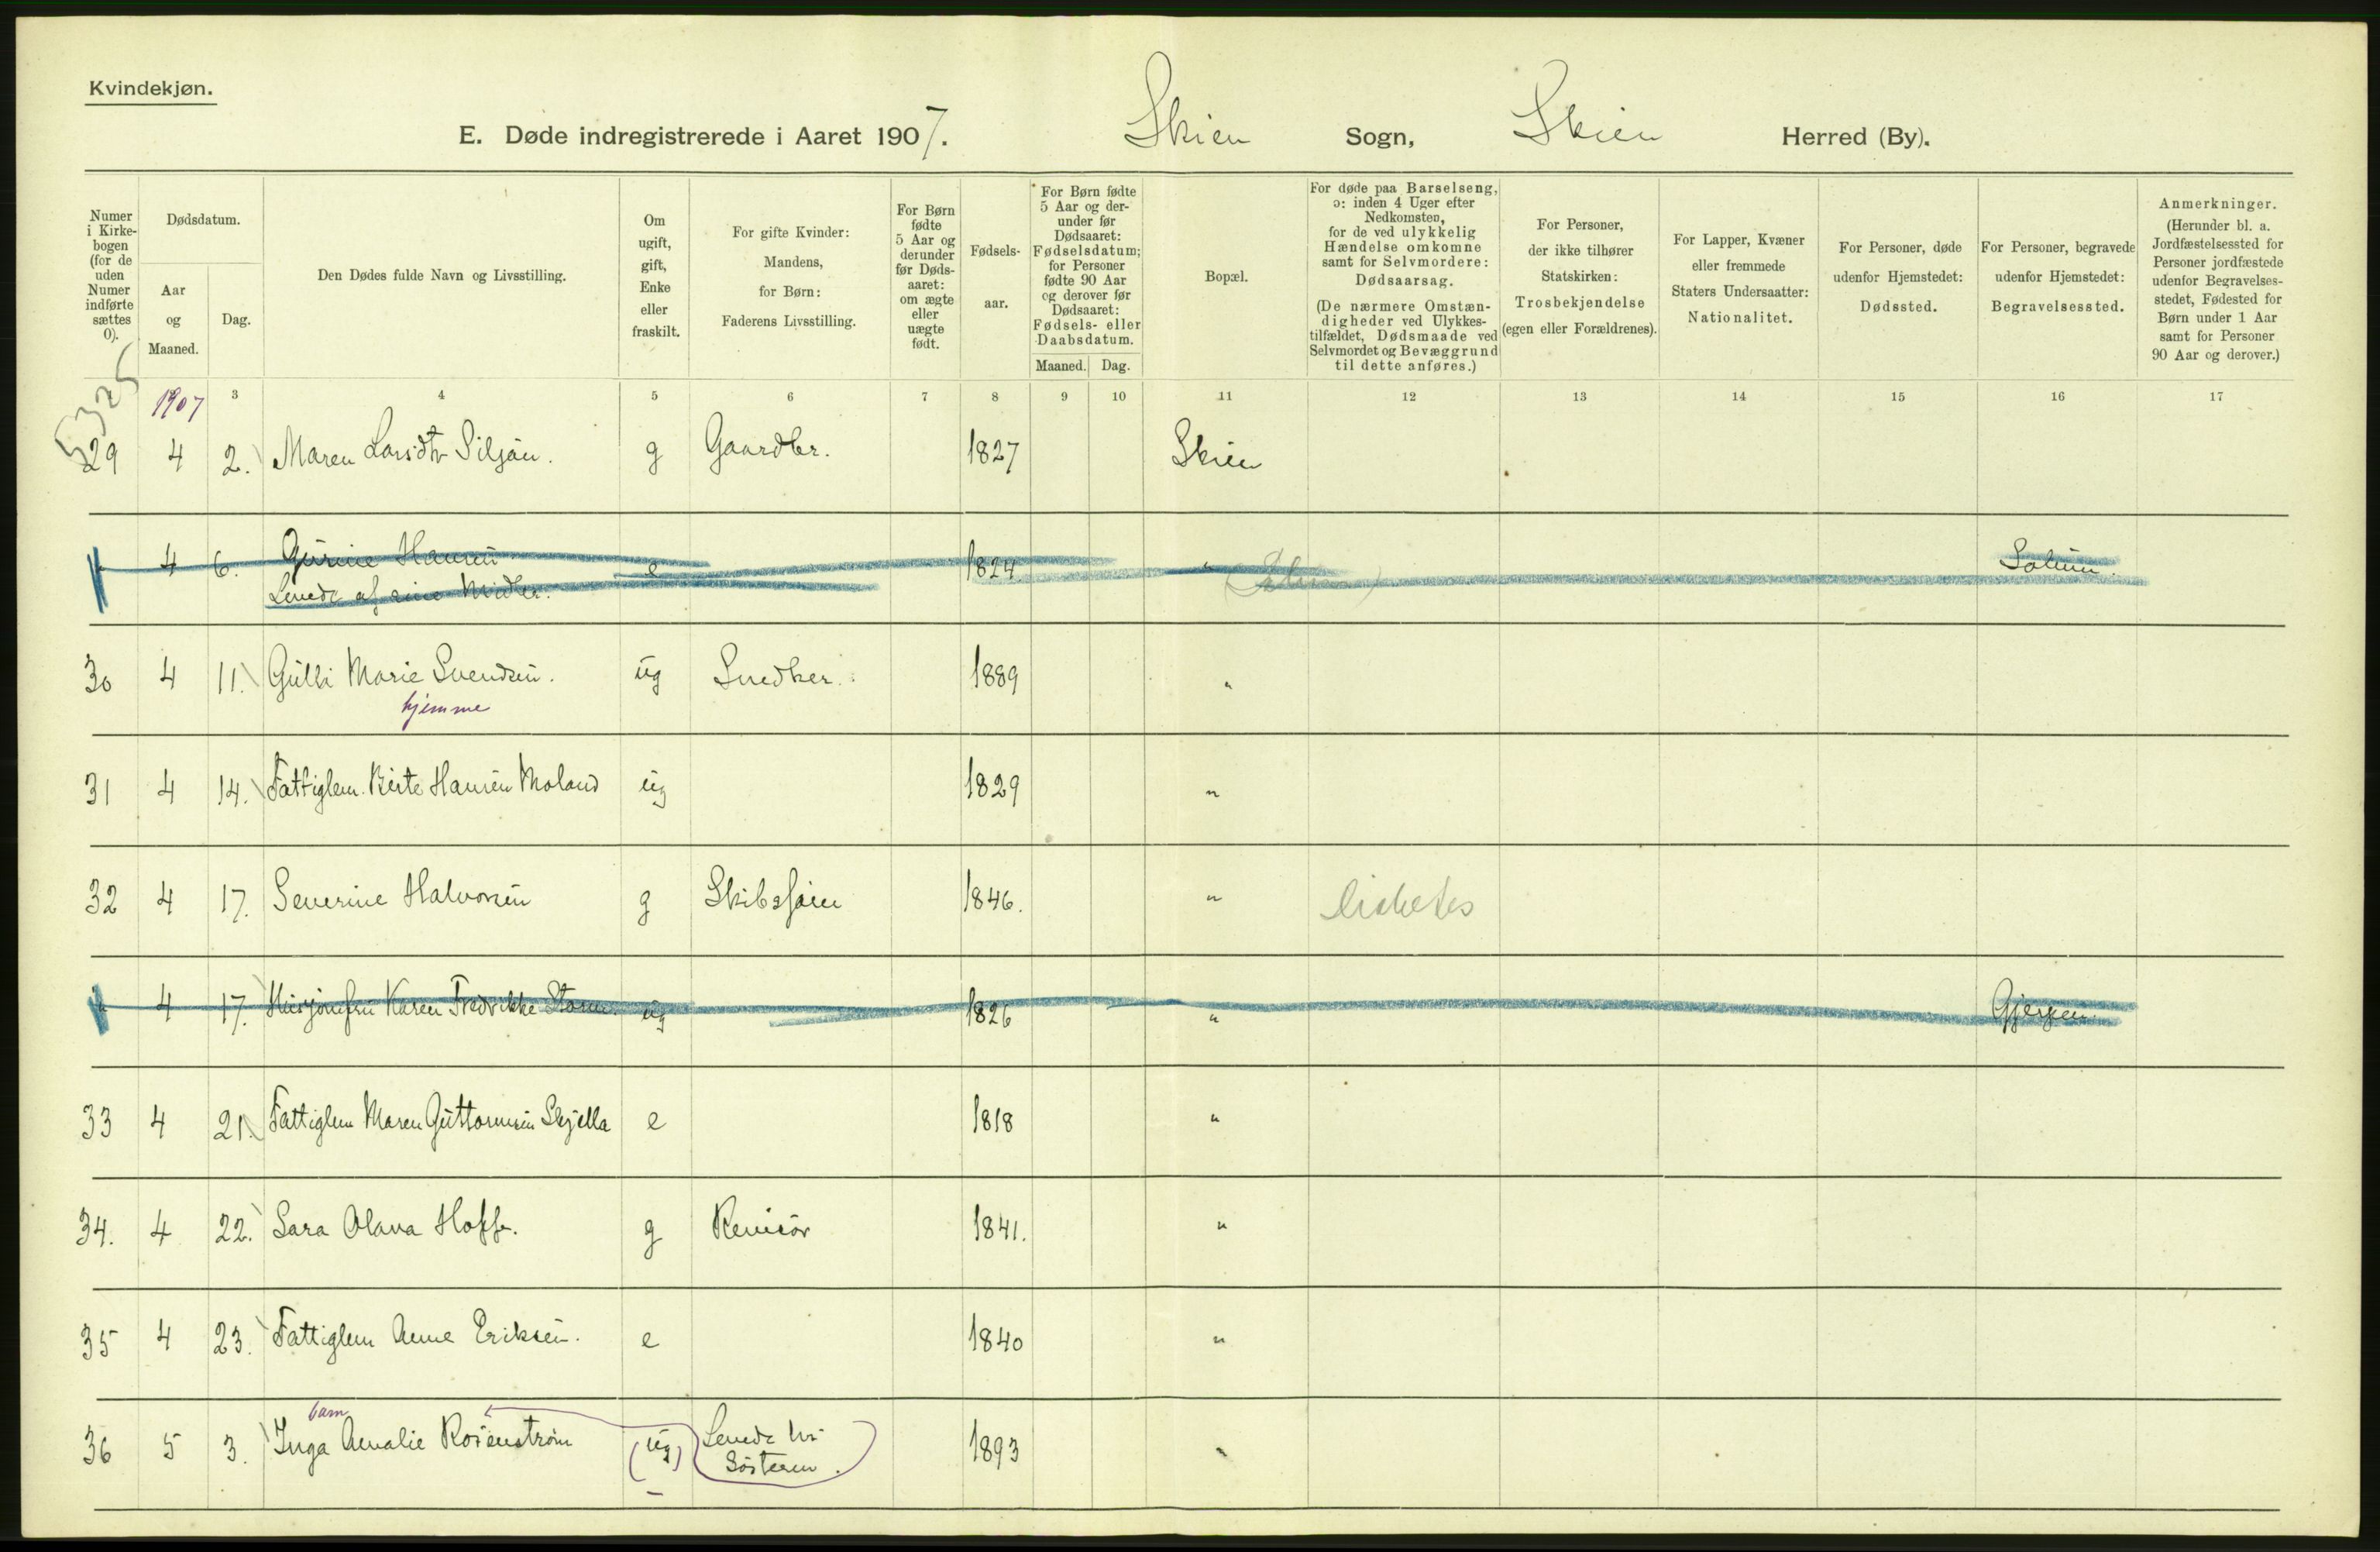 Kvindekjøn.
E. Døde indregistrerede i Aaret 1907. Skien Sogn, Skien Herred (By).
Numer i Kirkebogen (for de uden Numer indførte sættes 0).
Dødsdatum.
Aar og Maaned.
Dag.
Den Dødes fulde Navn og Livsstilling.
Om ugift, gift, Enke eller fraskilt.
For gifte Kvinder: Mandens, for Børn: Faderens Livsstilling.
For Børn fødte 5 Aar og derunder før Dødsaaret: om ægte eller uægte født.
Fødselsaar.
For Børn fødte 5 Aar og derunder før Dødsaaret: Fødselsdatum; for Personer fødte 90 Aar og derover før Dødsaaret: Fødsels- eller Daabsdatum.
Maaned. Dag.
Bopæl.
For døde paa Barselseng, ɔ: inden 4 Uger efter Nedkomsten, for de ved ulykkelig Hændelse omkomne samt for Selvmordere: Dødsaarsag.
(De nærmere Omstændigheder ved Ulykkestilfældet, Dødsmaade ved Selvmordet og Bevæggrund til dette anføres.)
For Personer, der ikke tilhører Statskirken: Trosbekjendelse (egen eller Forældrenes).
For Lapper, Kvæner eller fremmede Staters Undersaatter: Nationalitet.
For Personer, døde udenfor Hjemstedet: Dødssted.
For Personer, begravede udenfor Hjemstedet: Begravelsessted.
Anmerkninger. (Herunder bl. a. Jordfæstelsessted for Personer jordfæstede udenfor Begravelsesstedet, Fødested for Børn under 1 Aar samt for Personer 90 Aar og derover.)
1907 3 4 5 6 7 8 9 10 11 12 13 14 15 16 17
29 4 2. Maren Larsdtr Siljan. g Gaardbr. 1827 Skien
4 6. Gurine Hansen e 1824 " Solum
Levede af sine Midler.
30 4 11. Gulli Marie Svendsen. ug Snedker. 1889 "
hjemme
31 4 14. Fattiglem. Berte Hansen Moland ug 1829 "
32 4 17. Severine Halvorsen g Skibsfører 1846. " Diabetes
4 17. Husjomfru Karen Fredrikke Storm. ug 1826 " Gjerpen.
33 4 21. Fattiglem Maren Guttormsen Skjella e 1818 "
34. 4 22. Sara Olava Hoff. g Revisør 1841. "
35 4 23. Fattiglem Anne Eriksen. e 1840 "
barn
36 5 3. Inga Amalie Rosenstrøm (ug) Levede hos 1893 "
Søsteren.